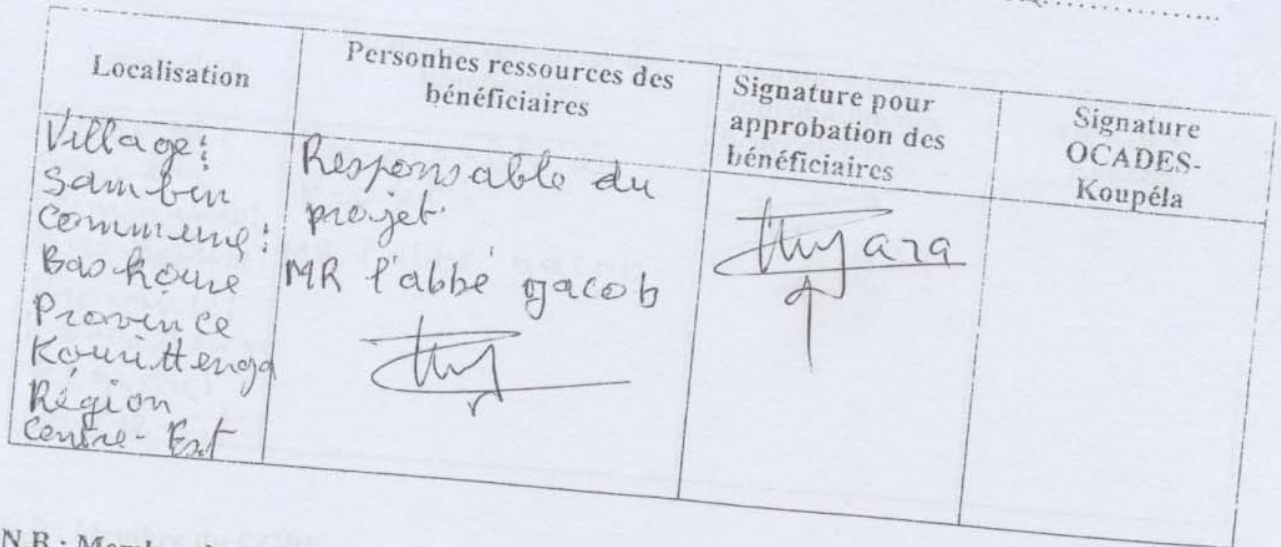 Localisation
Personnes ressources des
bénéficiaires
Signature pour
approbation des
bénéficiaires
Signature
OCADES-
Koupéla
Village:
Samben
Commune:
Baskoure
Province
Kourittenga
Région
Centre-Est
Responsable du
projet.
MR l'abbé Jacob
N.B : Membre